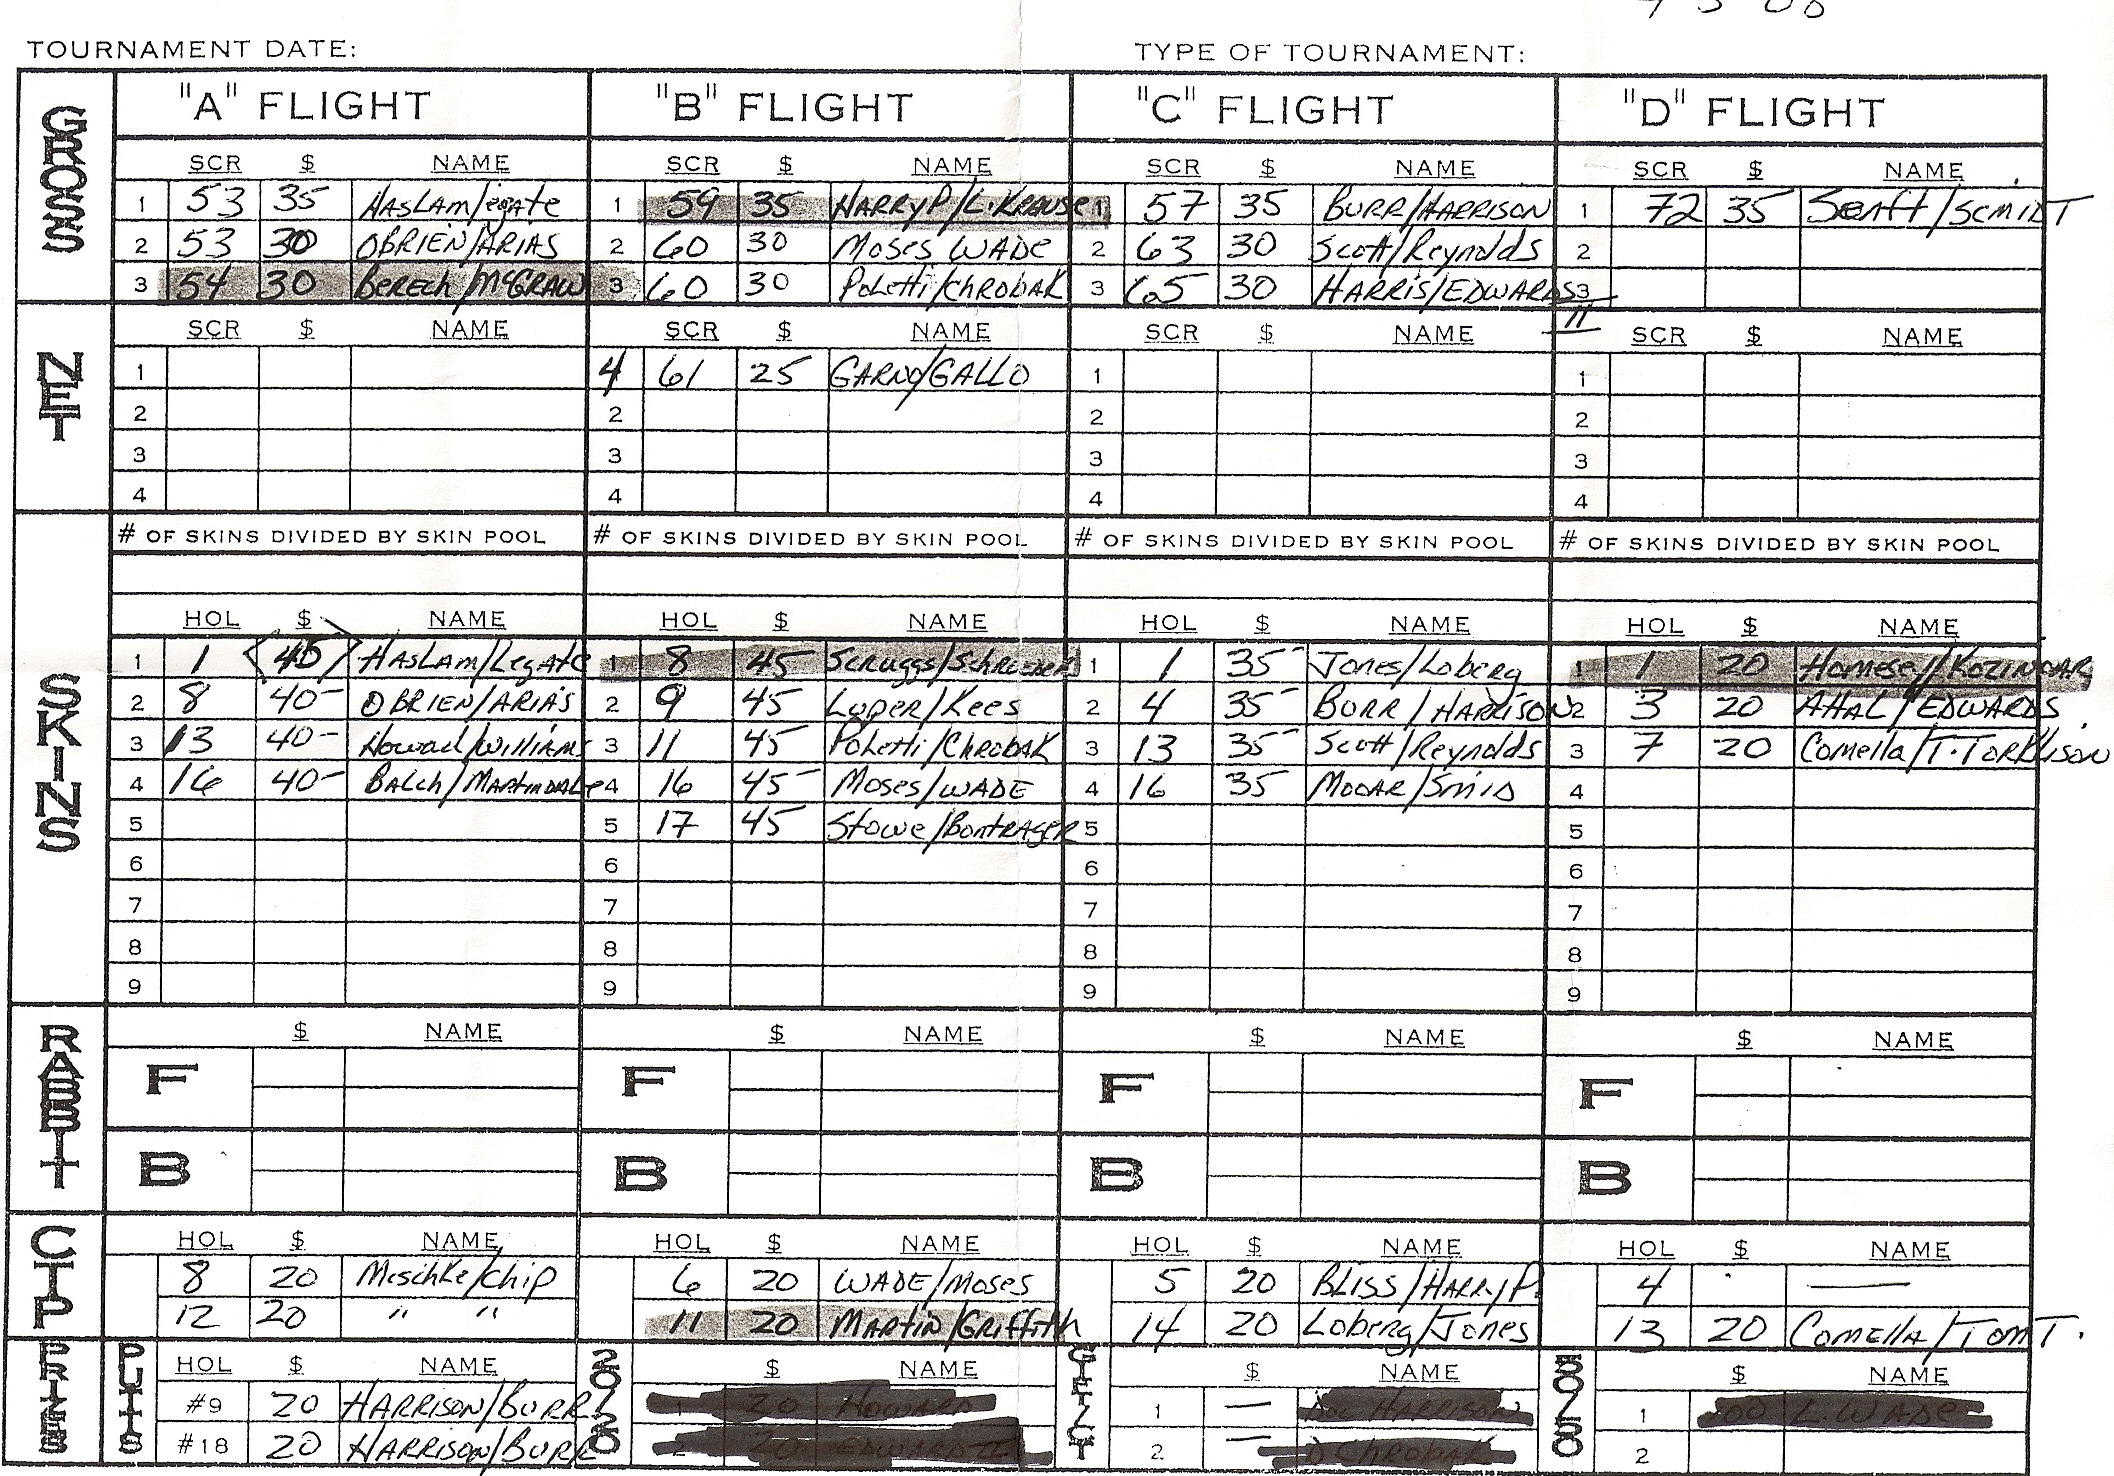 TOURNAMENT DATE: TYPE OF TOURNAMENT:
GROSS "A" FLIGHT "B" FLIGHT "C" FLIGHT "D" FLIGHT
SCR $ NAME SCR $ NAME SCR $ NAME SCR $ NAME
1 53 35 HASLAM/legate 1 59 35 HARRY P/L.KRAUSE 1 57 35 BURR/HARRISON 1 72 35 Senft/SCMIDT
2 53 30 OBRIEN/ARIAS 2 60 30 MOSES WADE 2 63 30 Scott/Reynolds 2
3 54 30 BERECH/McGRAW 3 60 30 Poletti/CHROBAK 3 65 30 HARRIS/EDWARDS 3
NET SCR $ NAME SCR $ NAME SCR $ NAME SCR $ NAME
1 4 61 25 GARNO/GALLO 1 1
2 2 2 2
3 3 3 3
4 4 4 4
SKINS # OF SKINS DIVIDED BY SKIN POOL # OF SKINS DIVIDED BY SKIN POOL # OF SKINS DIVIDED BY SKIN POOL # OF SKINS DIVIDED BY SKIN POOL
HOL $ NAME HOL $ NAME HOL $ NAME HOL $ NAME
1 1 <40> HASLAM/Legate 1 8 45 Scruggs/Schroeder 1 1 35 Jones/Loberg 1 1 20
2 8 40- OBRIEN/ARIAS 2 9 45 Lyper/Kees 2 4 35 BURR/HARRISON 2 3 20 AHAL/EDWARDS
3 13 40- Howard/Williams 3 11 45 Poletti/CHROBAK 3 13 35 Scott/Reynolds 3 7 20 Comella/T.TORKLISON
4 16 40- BALCH/MARTINDALE 4 16 45 MOSES/WADE 4 16 35 MODAR/SMID 4
5 5 17 45 Stowe/BONTRAGER 5 5
6 6 6 6
7 7 7 7
8 8 8 8
9 9 9 9
RABBIT $ NAME $ NAME $ NAME $ NAME
F F F F
B B B B
CTP HOL $ NAME HOL $ NAME HOL $ NAME HOL $ NAME
8 20 Meschke/chip 6 20 WADE/MOSES 5 20 BLISS/HARRY P. 4 —
12 20 " " 11 20 MARTIN/GRIFFITH 14 20 Loberg/Jones 13 20 COMELLA/TOM T.
PRIZES PUTTS HOL $ NAME 20/20 $ NAME $ NAME 50/50 $ NAME
#9 20 HARRISON/BURR 1 20 HOWARD 1 — HARRISON 1 L.WADE
#18 20 HARRISON/BURR 2 2 — D CHROBAK 2